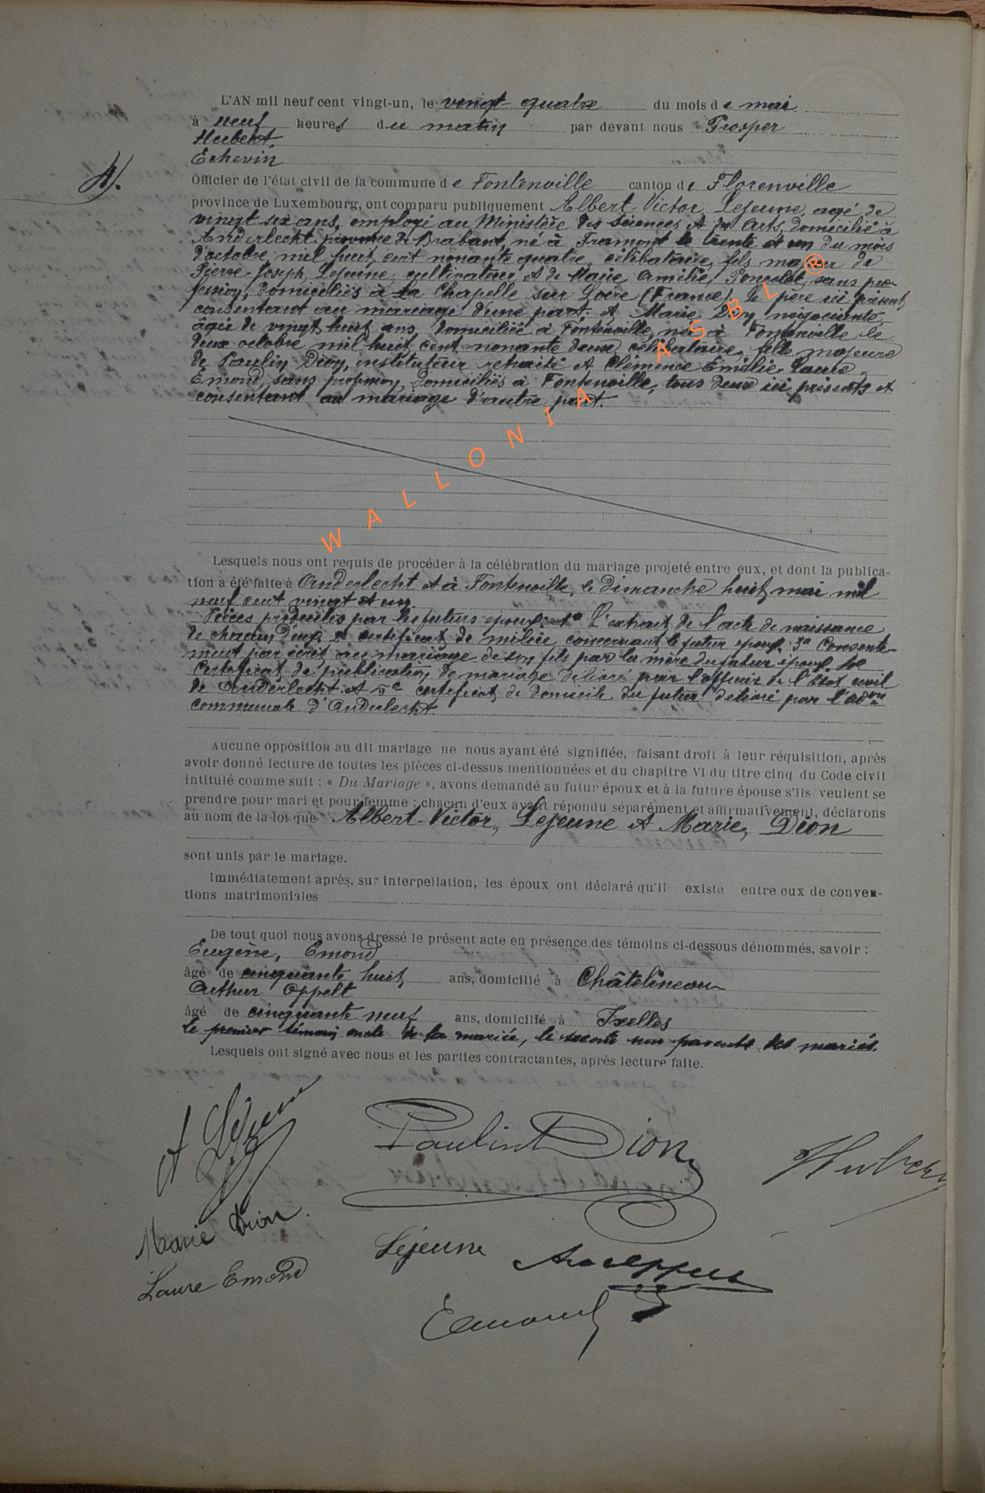 L'AN mil neuf cent vingt-un, le vingt quatre du mois de mai
à neuf heures du matin par devant nous Prosper
Hubert
Echevin
4).
Officier de l'état civil de la commune de Fontenoille canton de Florenville
province de Luxembourg, ont comparu publiquement Albert-Victor, Lejeune, agé de
vingt six ans, employé au Ministère des Sciences et des Arts, domicilié à
Anderlecht province de Brabant, né à Framont le trente et un du mois
d'octobre mil huit cent nonante quatre, célibataire, fils majeur de
Pierre-Joseph, Lejeune, cultivateur, et de Marie, Amélie, Poncelet, sans pro-
fession, domiciliés à La Chapelle sur Loire (France), le père ici présent,
consentant au mariage d'une part; et Marie, Dion, négociante,
agée de vingt huit ans, domiciliée à Fontenoille, née à Fontenoille le
deux octobre mil huit cent nonante deux, célibataire, fille majeure
de Paulin Dion, instituteur retraité et Clémence Emélie Laure,
Emond, sans profession, domiciliés à Fontenoille, tous deux ici présents et
consentant au mariage d'autre part.
WALLONIA ASBL ®
Lesquels nous ont requis de procéder à la célébration du mariage projeté entre eux, et dont la publica-
tion a été faite à Anderlecht et à Fontenoille, le Dimanche huit mai mil
neuf cent vingt et un
Pièces produites par les futurs époux: 1° L'extrait de l'acte de naissance
de chacun d'eux, 2° certificat de milice concernant le futur époux, 3° Consente-
ment par écrit au mariage de son fils par la mère du futur époux, 4°
Certificat de publication de mariage délivré par l'officier de l'État civil
de Anderlecht et 5° certificat de domicile du futur délivré par l'adon
communale d'Anderlecht.
Aucune opposition au dit mariage ne nous ayant été signifiée, faisant droit à leur réquisition, après
avoir donné lecture de toutes les pièces ci-dessus mentionnées et du chapitre VI du titre cinq du Code civil
intitulé comme suit : « Du Mariage », avons demandé au futur époux et à la future épouse s'ils veulent se
prendre pour mari et pour femme ; chacun d'eux ayant répondu séparément et affirmativement, déclarons
au nom de la loi que Albert-Victor, Lejeune et Marie, Dion
sont unis par le mariage.
Immédiatement après, sur interpellation, les époux ont déclaré qu'il existe entre eux de conven-
tions matrimoniales
De tout quoi nous avons dressé le présent acte en présence des témoins ci-dessous dénommés, savoir :
Eugène, Emond
âgé de cinquante huit ans, domicilié à Châtelineau
Arthur Oppelt
âgé de cinquante neuf ans, domicilié à Ixelles
le premier témoin oncle de la mariée, le second non parent des mariés.
Lesquels ont signé avec nous et les parties contractantes, après lecture faite.
A Lejeune
Paulin Dion
Hubert
Marie Dion.
Lejeune
Laure Emond
Emond